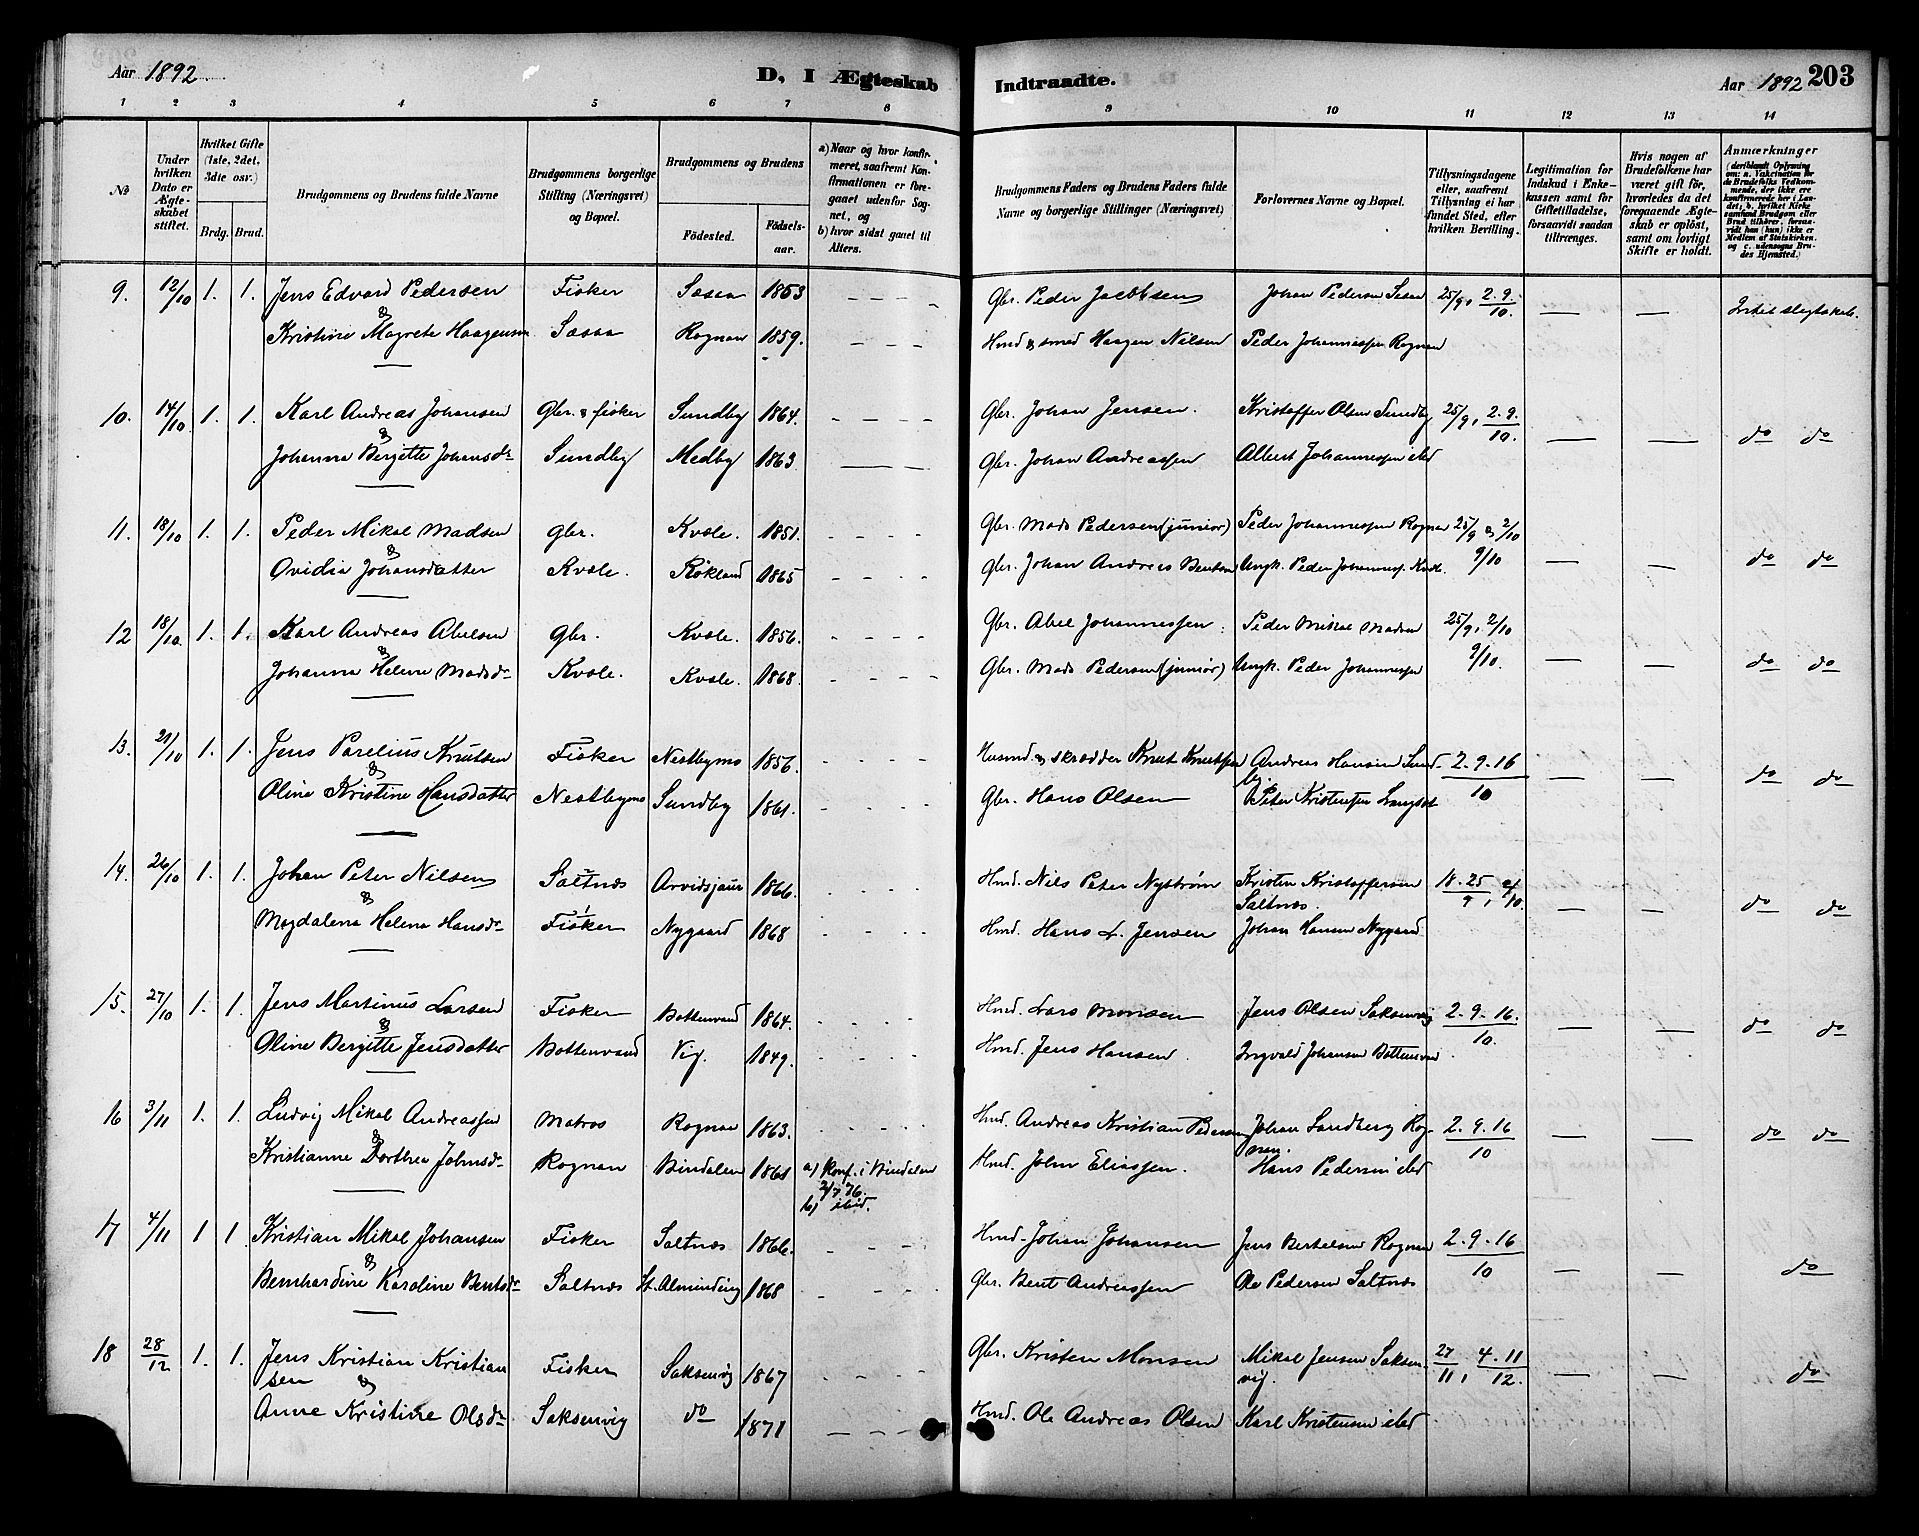 Aar 1892.
D, I Ægteskab
1 2 3 4 5 6 7 8
No
Under hvilken Dato er Ægteskabet stiftet.
Hvilket Gifte (1ste, 2det, 3die osv.)
Brdg. Brud.
Brudgommens og Brudens fulde Navne
Brudgommens borgerlige Stilling (Næringsvei) og Bopæl.
Brudgommens og Brudens
Fødested. Fødsels-aar.
a) Naar og hvor konfirmeret, saafremt Konfirmationen er foregaaet udenfor Sognet, og
b) hvor sidst gaaet til Alters.
9. 12/10 1. 1. Jens Edvard Pedersen Fisker Saxen 1853
&
Kristine Magrete Haagensen Rognan 1859.
10. 14/10 1. 1. Karl Andreas Johansen Gbr. & fisker Sundby 1864.
&
Johanna Bergitte Johansdr Sundby Medby 1863.
11. 18/10 1. 1. Peder Mikal Madsen gbr. Kvæle. 1851.
&
Ovidia Johansdatter Kvæle. Røkland 1865
12 18/10. 1. 1. Karl Andreas Abelsen gbr. Kvæle. 1856.
&
Johanna Helene Madsdr Kvæle. Kvæle. 1868.
13. 21/10 1. 1. Jens Parelius Knutsen Fisker Nestbymo 1856.
&
Oline Kristine Hansdatter Nestbymo Sundby 1861.
14. 26/10 1. 1. Johan Peter Nilsen Saltnæs Arvidsjaur 1866.
&
Magdalena Helena Hansdr Fisker Nygaard 1868
15. 27/10 1. 1. Jens Martinus Larsen Fisker Bottenvand 1864.
&
Oline Bergitte Jensdatter Bottenvand Vig. 1849.
16 3/11 1. 1. Ludvig Mikal Andreassen Matros Rognan 1863.
&
Kristianne Dorthea Johnsdr Rognan Bindalen 1861 a) Konf. i Bindalen
2/7 76.
b) ibid.
17 4/11 1 1. Kristian Mikal Johansen Fisker Saltnæs 1866.
&
Bernhardine Karoline Bentsdr Saltnæs St. Alminding 1868
18 28/12 1. 1. Jens Kristian Kristiansen Fisker Saksenvig 1867
&
Anne Kristine Olsdr Saksenvig do 1871
Indtraadte.
Aar 1892 203
9 10 11 12 13 14
Brudgommens Faders og Brudens Faders fulde Navne og borgerlige Stillinger (Næringsvei)
Forlovernes Navne og Bopæl.
Tillysningsdagene eller, saafremt Tillysning ei har fundet Sted, efter hvilken Bevilling.
Legitimation for Indskud i Enkekassen samt for Giftetilladelse, forsaavidt saadan tiltrænges.
Hvis nogen af Brudefolkene har været gift før, hvorledes da det foregaaende Ægteskab er opløst, samt om lovligt Skifte er holdt.
Anmærkninger
Gbr. Peder Jacobsen Johan Pedersen 25/9, 2.9./10. Intet slegtskab.
Hmd & smed Haagen Nilsen Peder Johannessen Rognan
Gbr. Johan Jensen. Kristoffer Olsen Sundby 25/9, 2.9./10. do do
Gbr. Johan Andreassen Albert Johannessen ibid
Gbr. Mads Pedersen (junior) Peder Johannessen Rognan 25/9 & 2/10
Gbr. Johan Andreas Bentsen Ungk. Peder Johanness. Kvæl. 9/10 do do
Gbr. Abel Johannessen. Peder Mikal Madsen 25/9, 2/10
Gbr. Mads Pedersen (junior) Ungk. Peder Johannessen 9/10. do do
Husmd & skrædder Knut Knutsen Andreas Hansen Sundby. 2.9.16/10 do do
Gbr. Hans Olsen Peter Kristensen Langset
Hmd. Nils Peter Nystrøm Kristen Kristoffersen Saltnæs. 18.25/9, 2/10. do do
Hmd. Hans L. Jensen Johan Hansen Nygaard
Hmd. Lars Monsen Jens Olsen Saksenvig 2.9.16./10. do do
Hmd. Jens Hansen. Ingvald Johansen Bottenvand.
Hmd. Andreas Kristian Pedersen Johan Sandberg Rognan. 2.9.16/10 do do
Hmd. John Eliassen. Hans Pedersen ibid
Hmd. Johan Johansen Jens Bertelsen Rognan 2.9.16/10 do
Gbr. Bent Andreassen Ole Pedersen Saltnæs
Gbr. Kristen Monsen Mikal Jensen Saksenvig. 27/11, 4.11/12. do
Hmd. Ole Andreas Olsen Karl Kristensen ibid